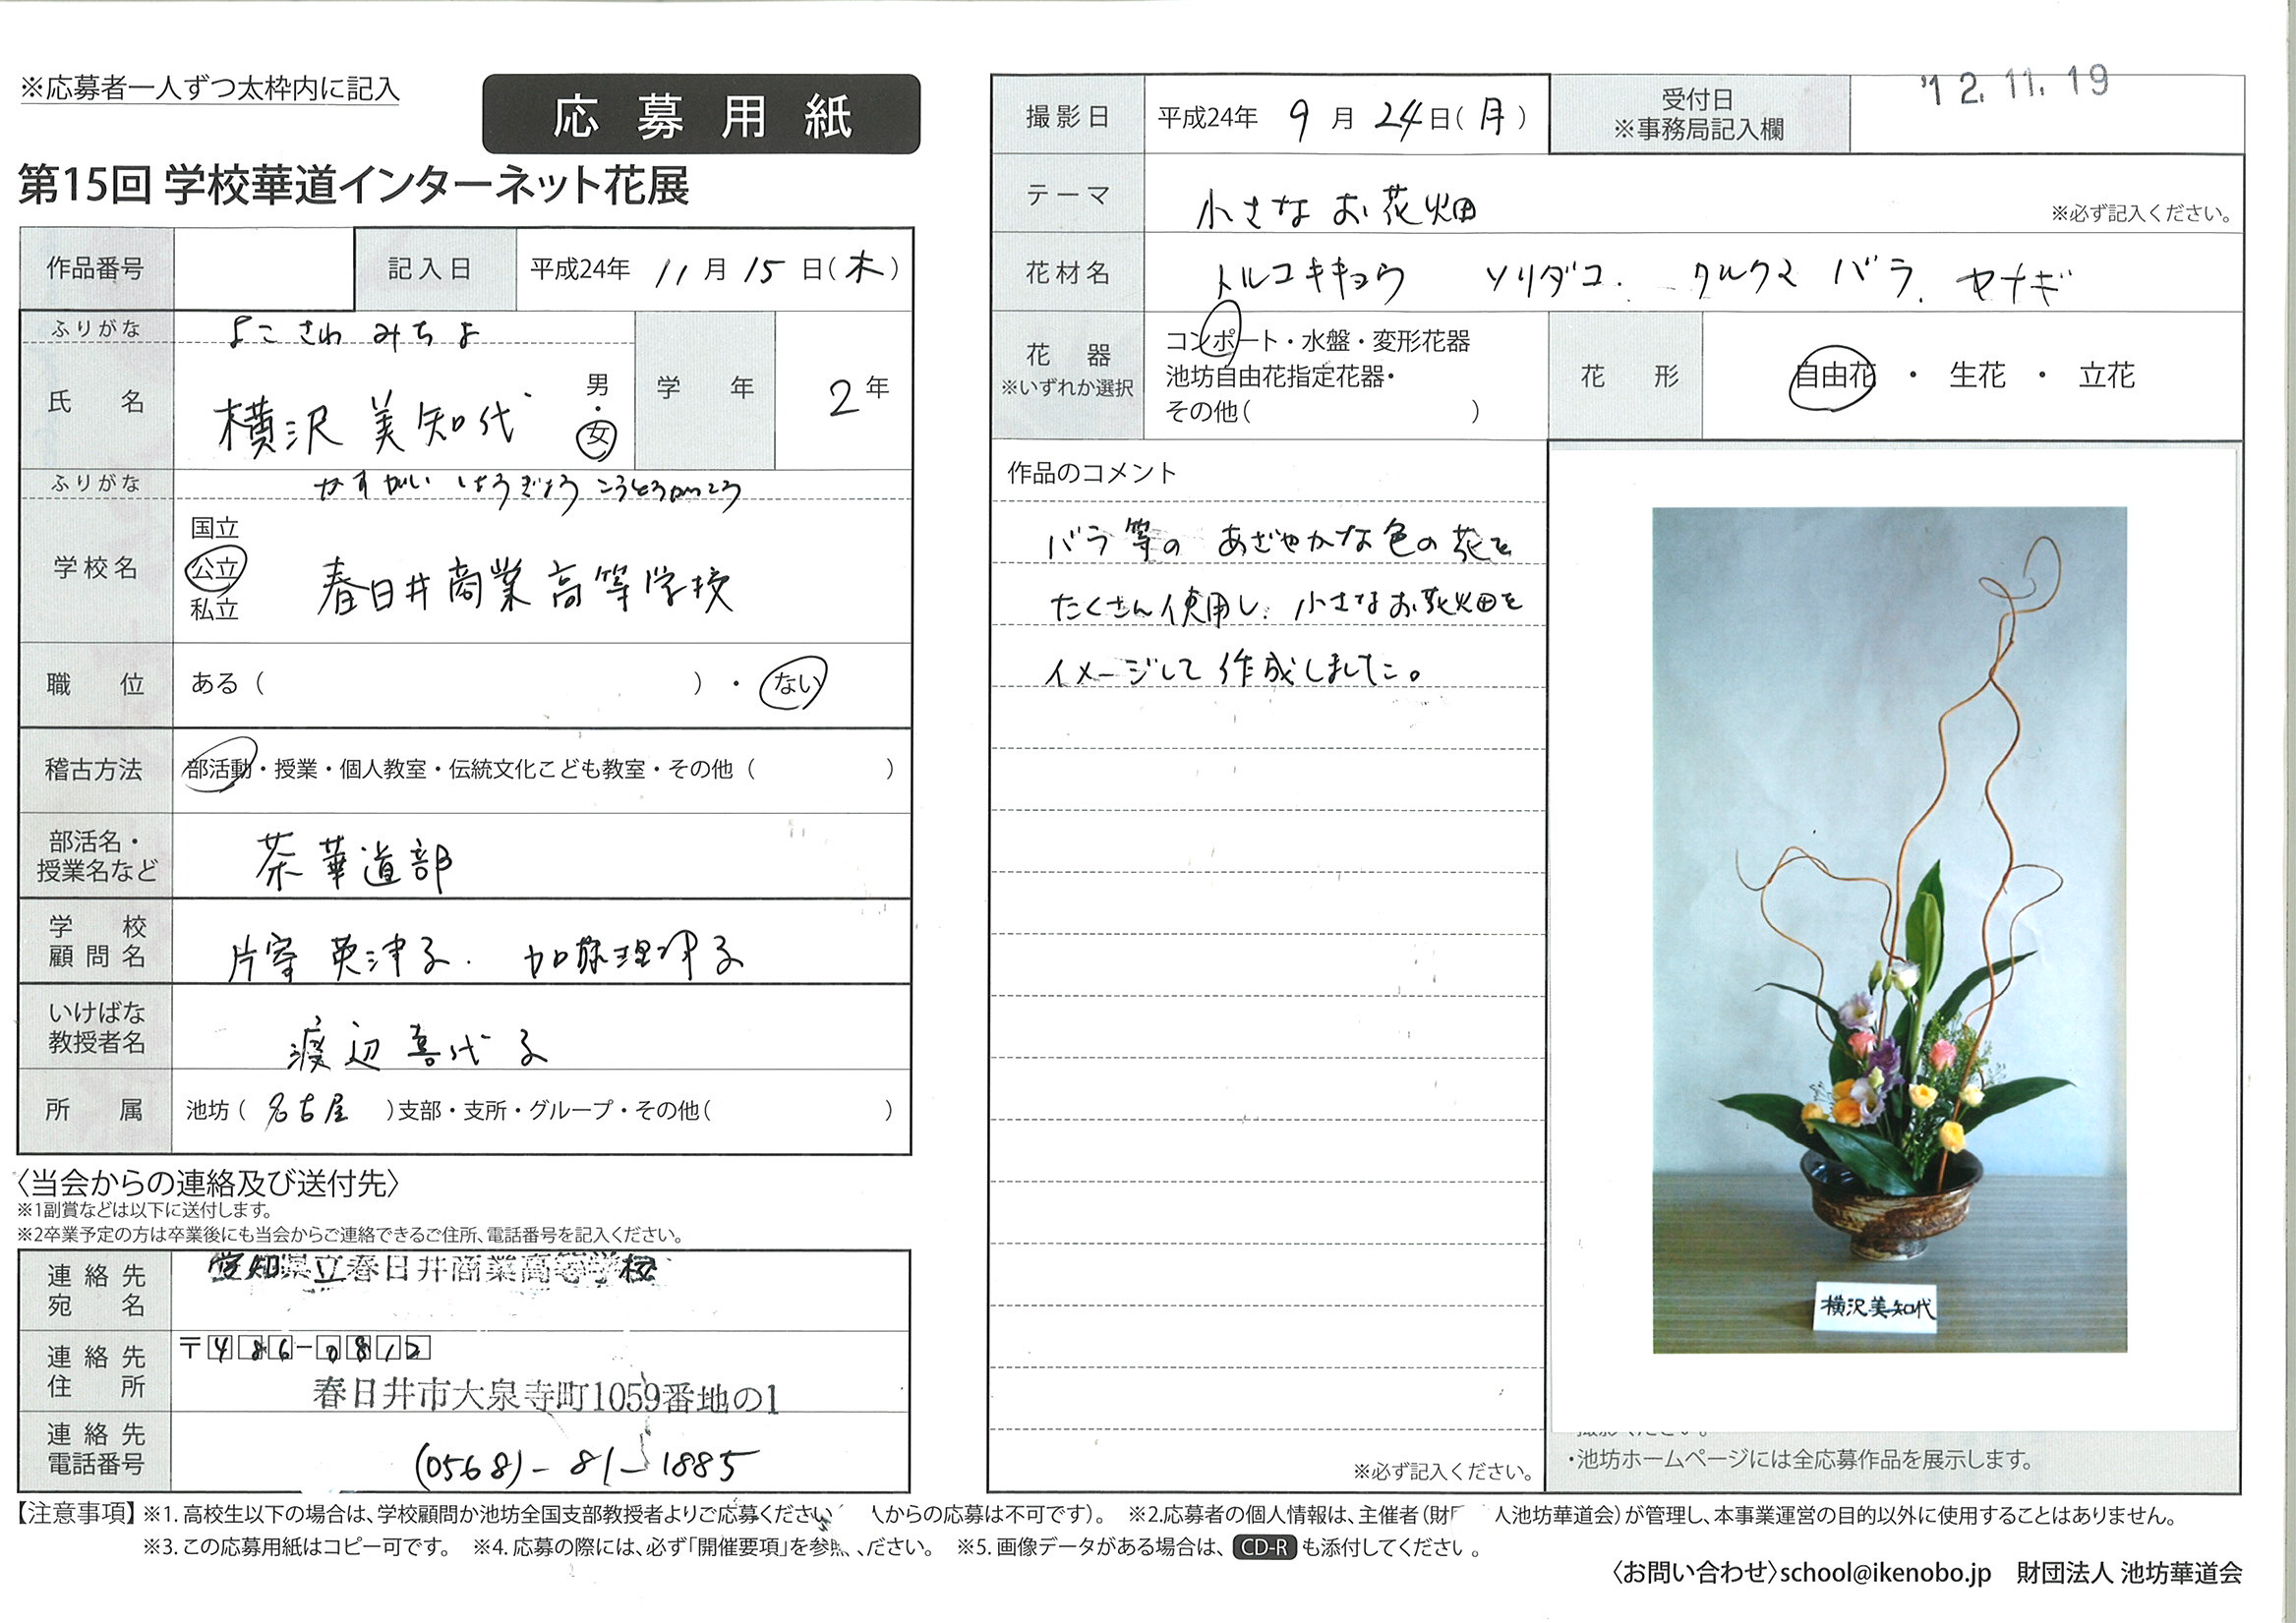 ※応募者一人ずつ太枠内に記入
応募用紙
第15回 学校華道インターネット花展
作品番号
記入日 平成24年 11月15日(木)
ふりがな よこさわ みちよ
氏名 横沢 美知代 男・女
学年 2年
ふりがな かすがい しょうぎょう こうとうがっこう
学校名 国立 公立 私立 春日井商業高等学校
職位 ある( )・ない
稽古方法 部活動・授業・個人教室・伝統文化こども教室・その他( )
部活名・授業名など 茶華道部
学校顧問名 片寄 英津子. 加藤理津子
いけばな教授者名 渡辺喜代子
所属 池坊(名古屋)支部・支所・グループ・その他( )
〈当会からの連絡及び送付先〉
※1副賞などは以下に送付します。
※2卒業予定の方は卒業後にも当会からご連絡できるご住所、電話番号を記入ください。
連絡先宛名 愛知県立春日井商業高等学校
連絡先住所 〒486-0812
春日井市大泉寺町1059番地の1
連絡先電話番号 (0568)-81-1885
撮影日 平成24年 9月24日(月)
受付日 ※事務局記入欄 '12.11.19
テーマ 小さなお花畑 ※必ず記入ください。
花材名 トルコキキョウ ソリダコ. クルクマ バラ. ヤナギ
花器 ※いずれか選択
コンポート・水盤・変形花器
池坊自由花指定花器・
その他( )
花形 自由花・生花・立花
作品のコメント
バラ等の あざやかな色の花を
たくさん使用し、小さなお花畑を
イメージして作成しました。
※必ず記入ください。
横沢美知代
・池坊ホームページには全応募作品を展示します。
【注意事項】※1. 高校生以下の場合は、学校顧問か池坊全国支部教授者よりご応募ください 人からの応募は不可です)。 ※2.応募者の個人情報は、主催者(財 人池坊華道会)が管理し、本事業運営の目的以外に使用することはありません。
※3. この応募用紙はコピー可です。 ※4. 応募の際には、必ず「開催要項」を参照 ください。 ※5. 画像データがある場合は、CD-Rも添付してください。
〈お問い合わせ〉school@ikenobo.jp 財団法人 池坊華道会